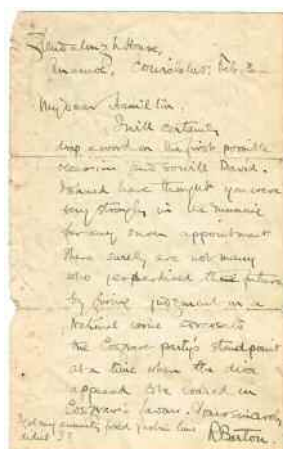 House,
My dear Hamilton.
I will certainly
drop a word on the first possible
occasion and so will David.
I should have thought you were
very strongly in the running
for any such appointment
there surely are not many
who jeopardised the future
by giving judgment in a
National
the Cosgrave party's standpoint
at a time when the dice
appeared to be loaded in
Cosgrave's favour. Yours sincerely
R Barton.